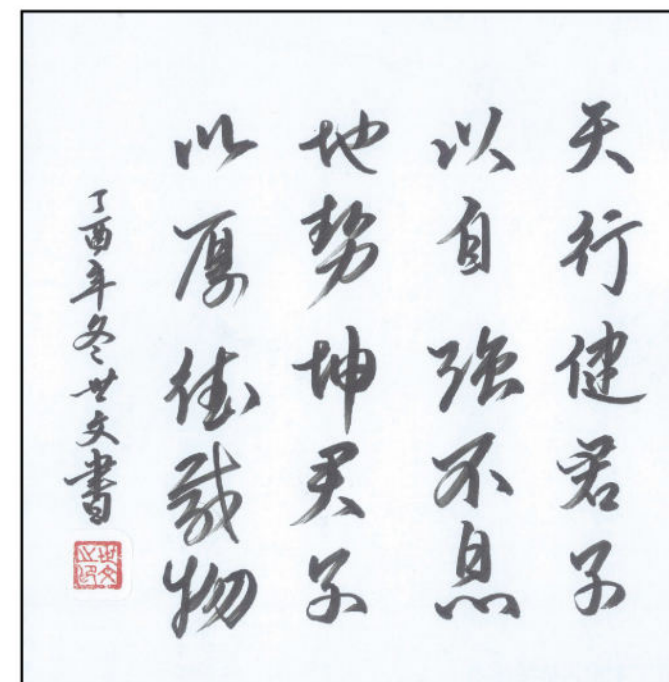 天行健君子
以自強不息
地势坤君子
以厚德载物
丁酉年冬世文書
世文之印